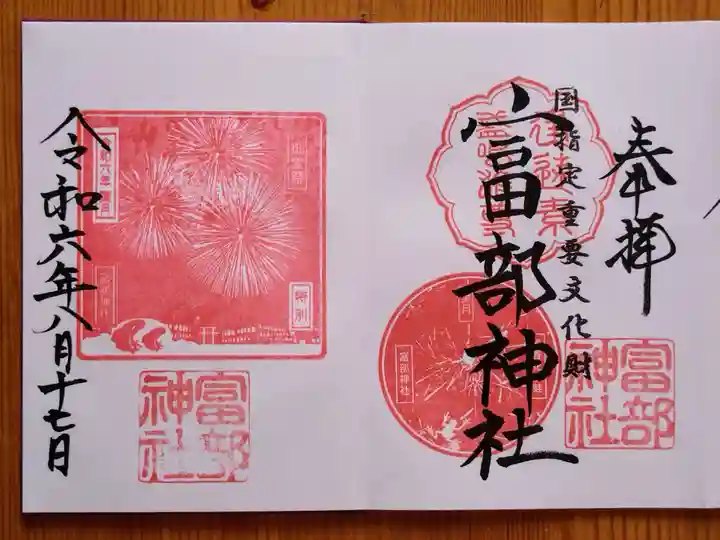 奉拝
国指定重要文化財
富部神社
富部
神社
月
富部神社
令和六年八月十七日
特別
富部神社
富部
神社